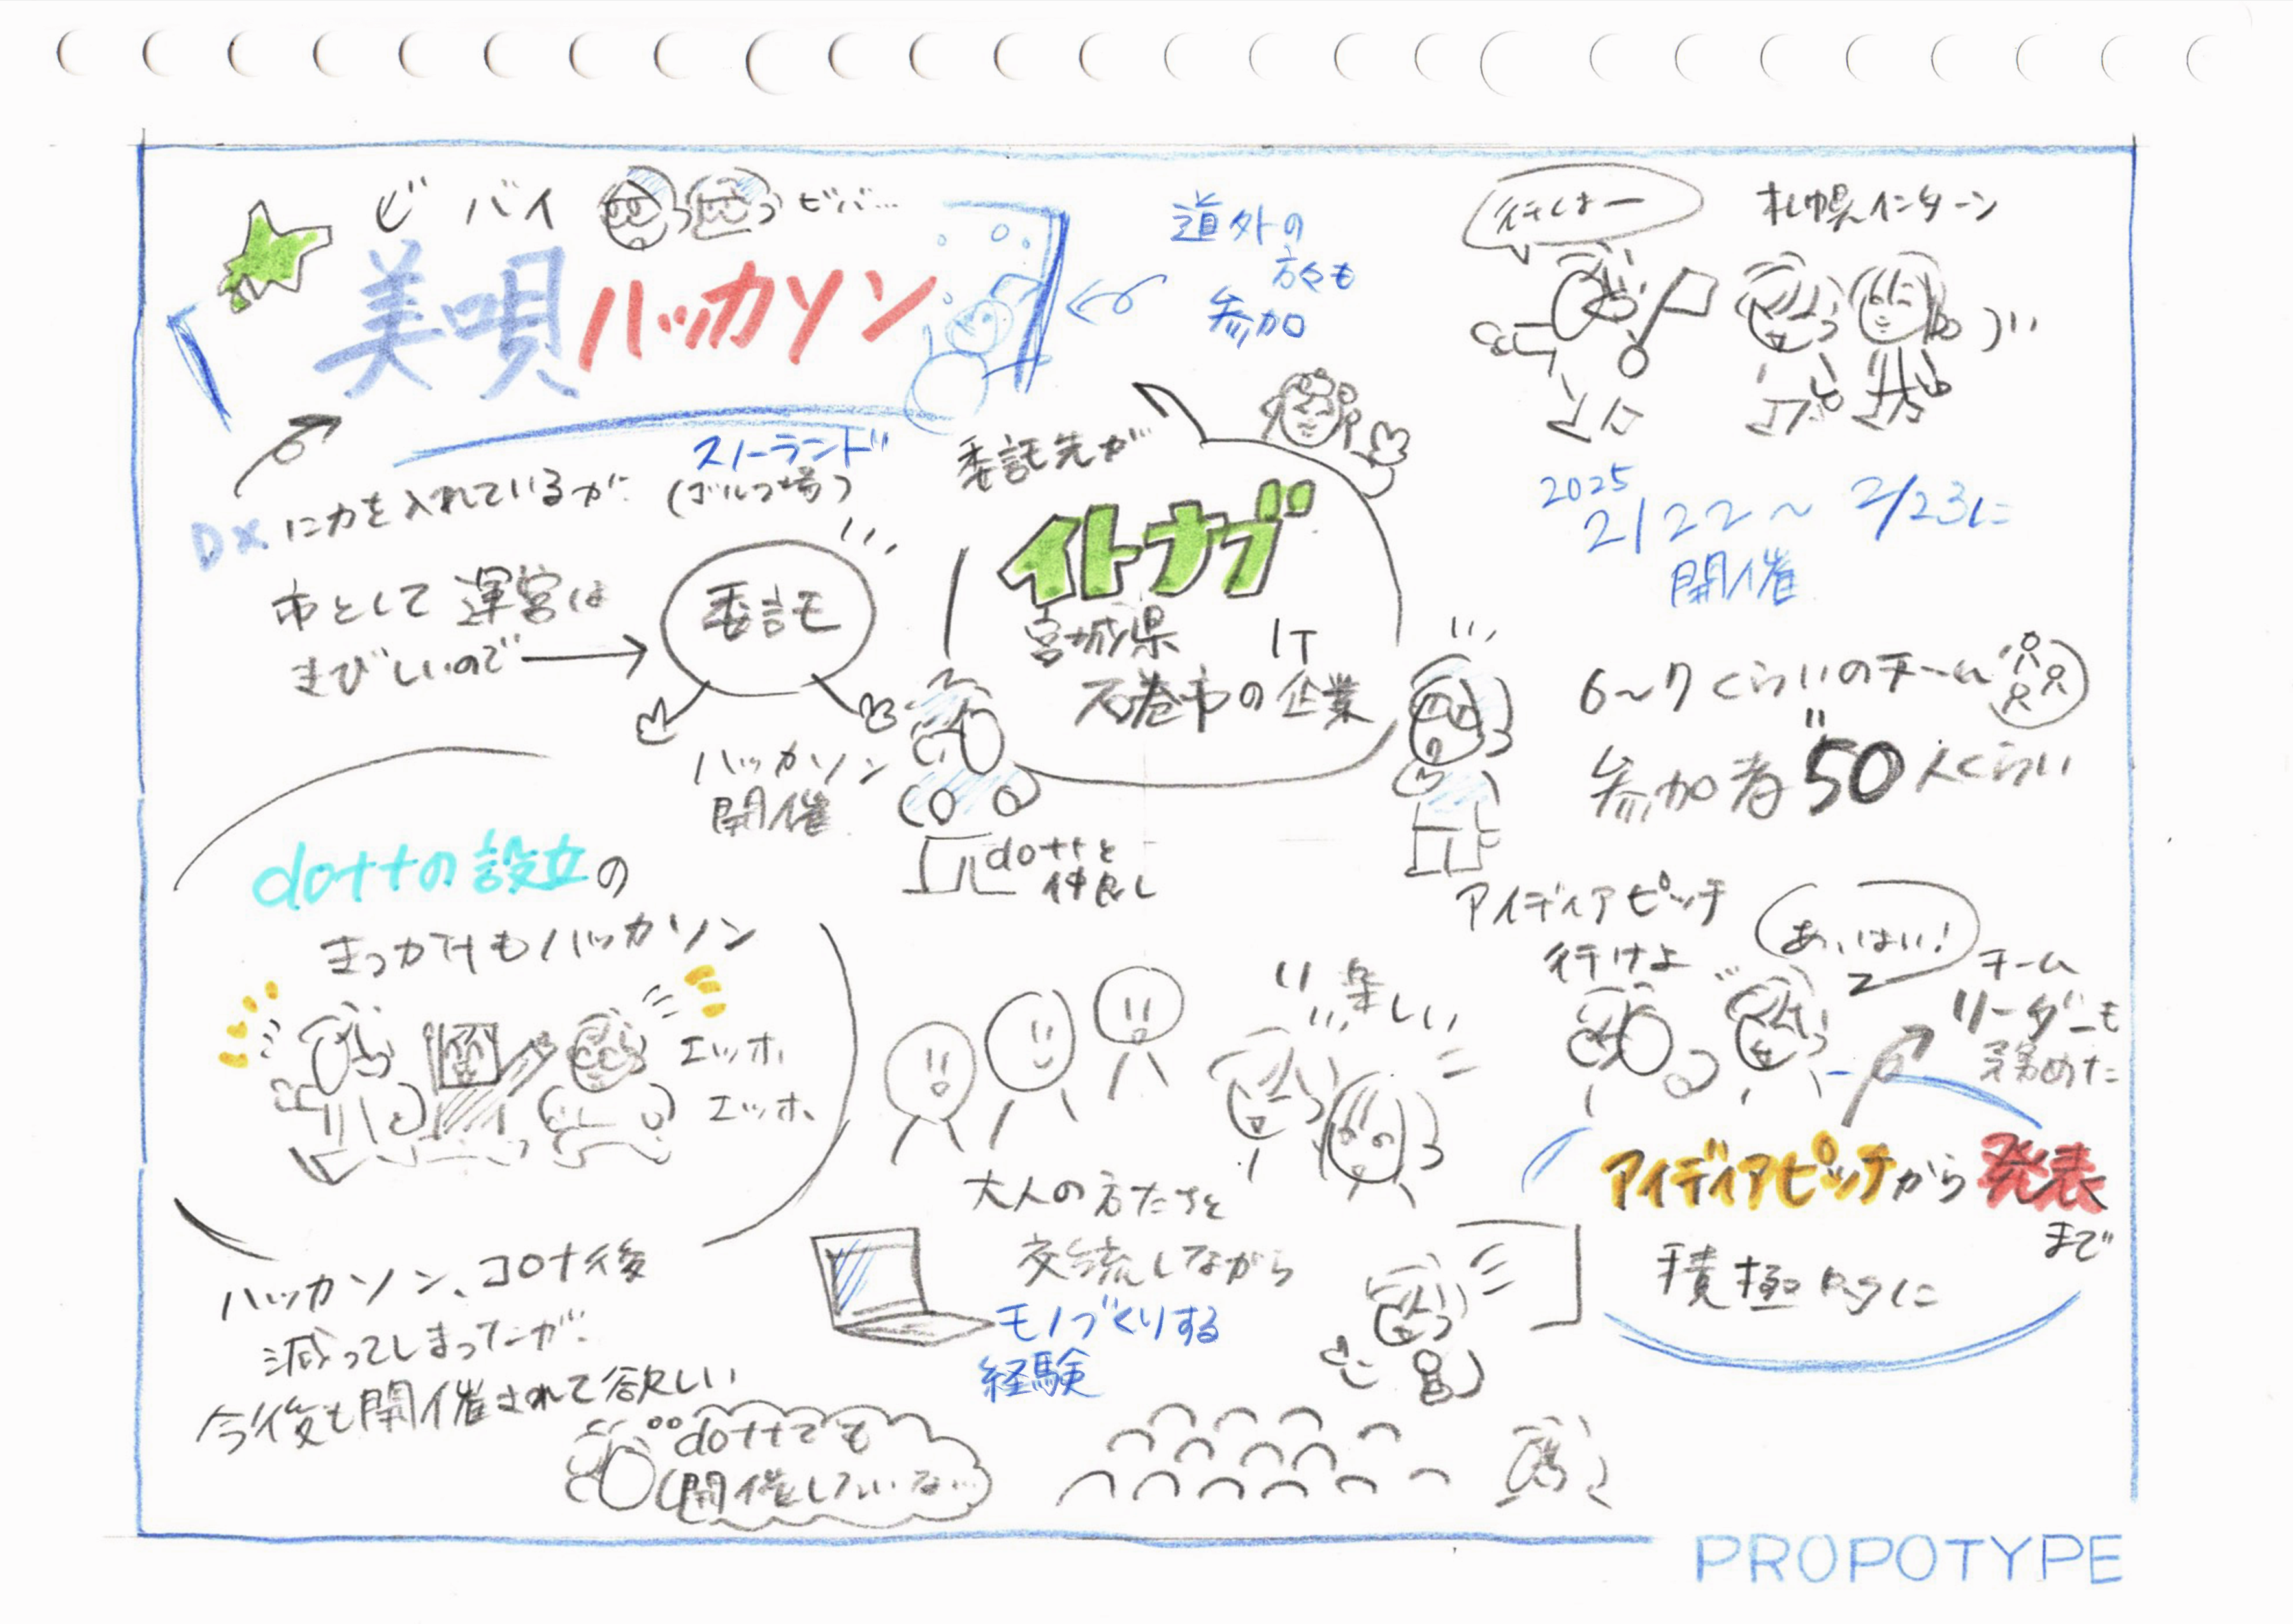 ビバイ
ビバ…
美唄ハッカソン
道外の
方々も
参加
スノーランド
(ゴルフ場)
DXに力を入れているが
市として運営は
きびしいので
委託
ハッカソン
開催
委託先が
イトナブ
宮城県
石巻市の
IT
企業
dottと
仲良し
行くよー
札幌インターン
2025
2/22〜2/23に
開催
6〜7くらいのチーム
参加者50人くらい
アイディアピッチ
行けよ
あ、はい!
チーム
リーダーも
務めた
アイディアピッチから発表
まで
積極的に
dottの設立の
きっかけもハッカソン
エッホ、
エッホ、
ハッカソン、コロナ後
減ってしまったが、
今後も開催されて欲しい
dottでも
開催したいな…
楽しい
大人の方たちと
交流しながら
モノづくりする
経験
PROPOTYPE